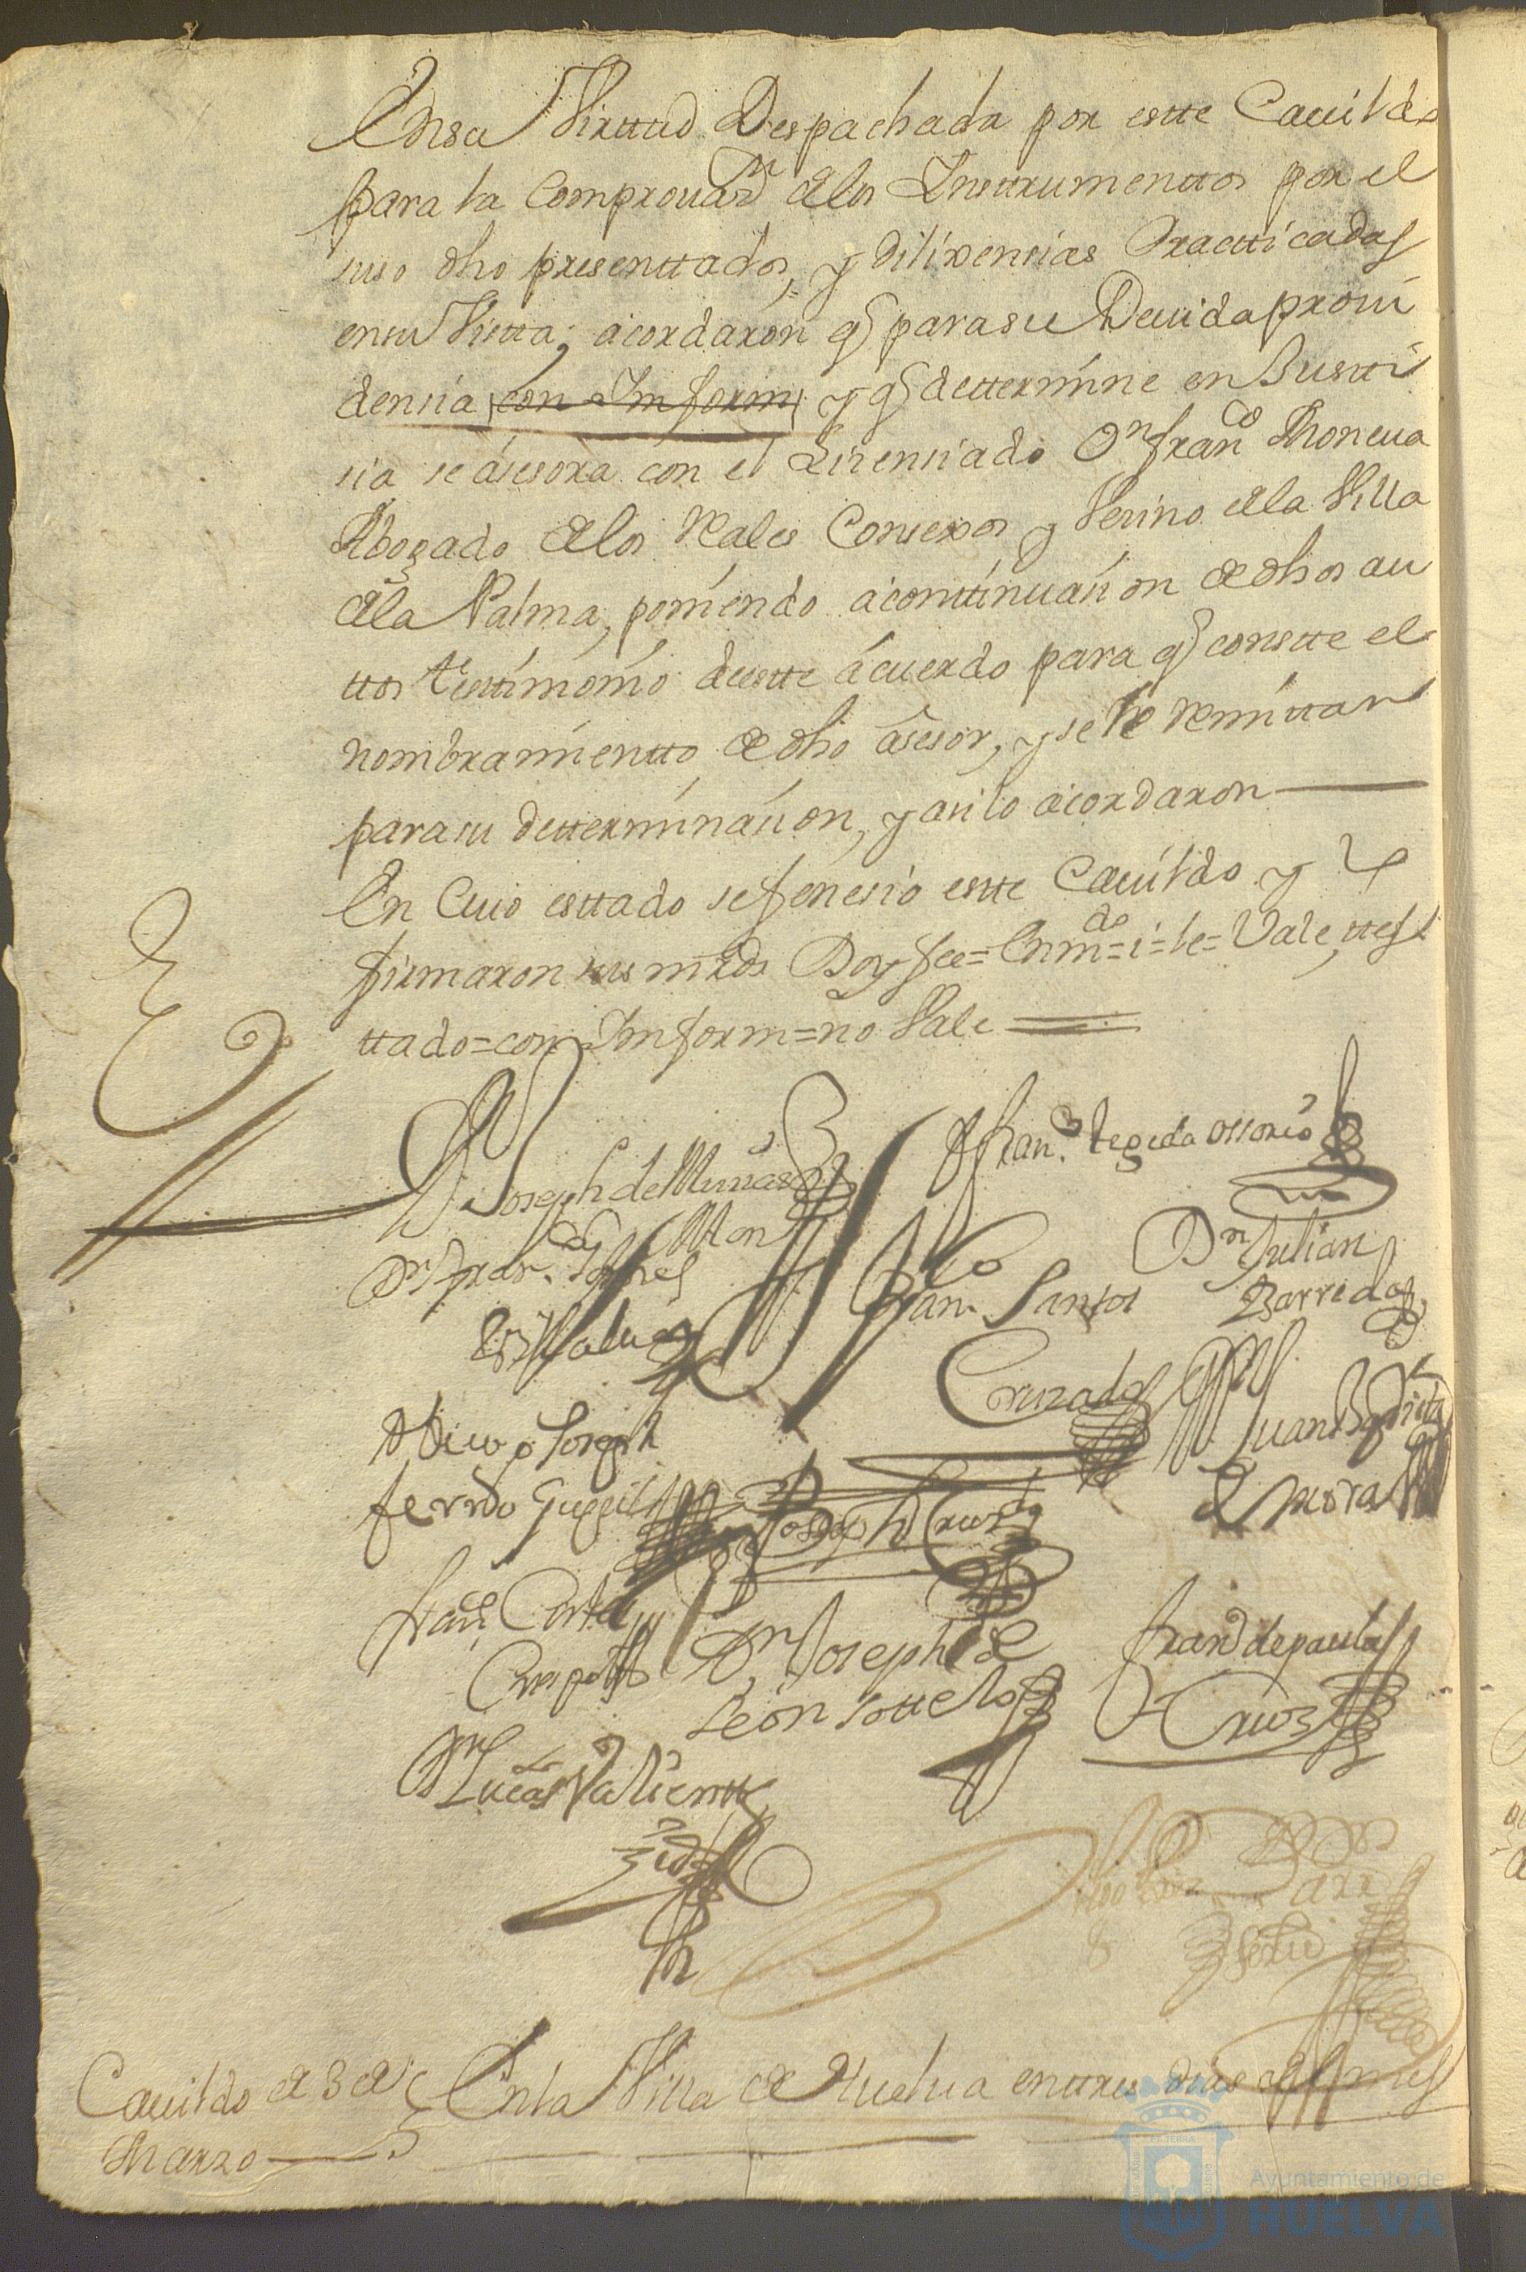 Ensu Virttud Despachada por estte Cauildo
para la Comprouaon delos Instrumenttos por el
suso dho presenttados, y dilixencias Practticadas
ensu Vistta; acordaron q parasu Deuida proui
dencia con Inform y q dettermine en Justti
sia se asesora con el Lisensiado Dn Franco Moncua
Abogado delos Reales Consexos y Vesino dela Villa
dela Palma, poniendo acontinuasion de dhos au
ttos Testtimonio deestte acuerdo para q constte el
nombramientto de dho asesor, y se le Remittan
parasu detterminasion, y asilo acordaron
En Cuio esttado sefenesio estte Cauildo y
firmaron sus mrds Doy fee = Enmdo = i = le = Vale, ttes
ttado = con Inform = no Vale
Franco tegeda ossorio
Joseph de
Dn Julian
Barreda
Fran Santos
Cruzado
Juan Baptista
Mora
Joseph
Joseph Cruzdo
Fran Corttes
Crespo
Dn Joseph de
León sottelo
Franco de paula
Cruz
Dn Lucas Valientte
Cauildo de 3 de
Marzo
Enla Villa de Huelua enttres dias del mes
Ayuntamiento de
HUELVA